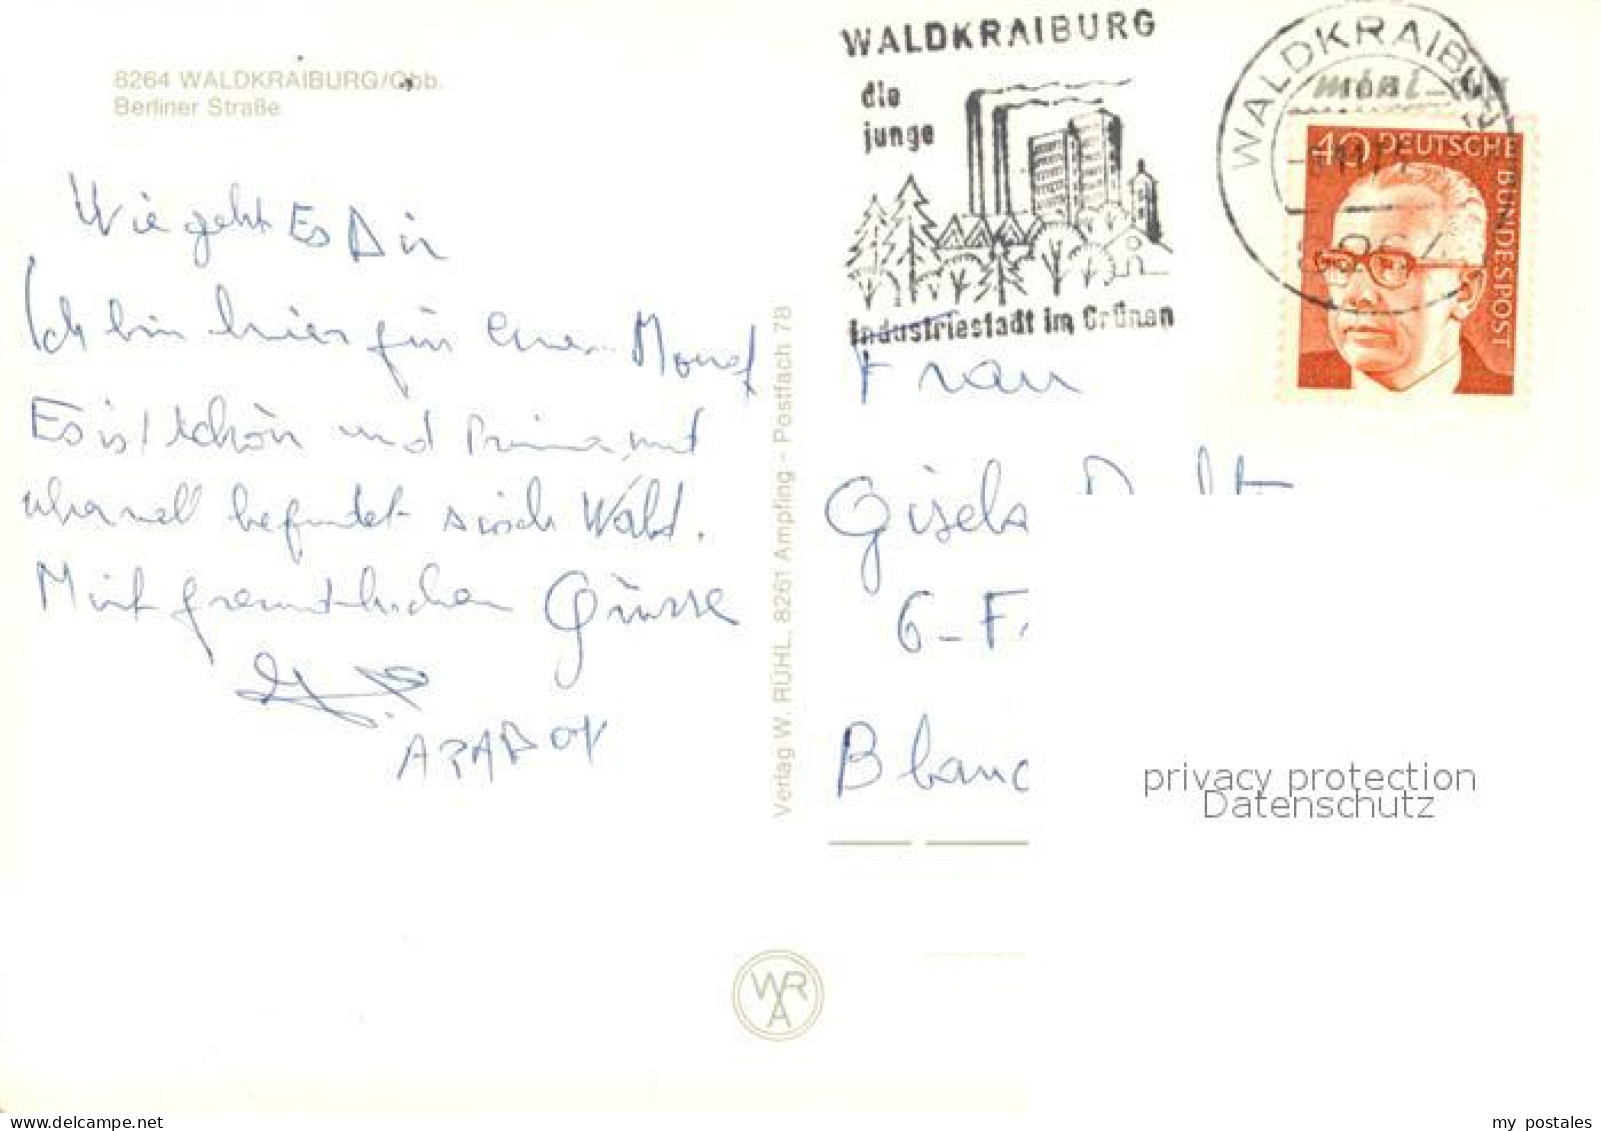 8264 WALDKRAIBURG/Obb.
Berliner Straße
Wie geht Es Dir
Ich bin hier für einen Monat
Es ist schön und Prima und
überall befindet sisch Wald.
Mit freundlichen Grüsse
Verlag W. RÜHL, 8261 Ampfing - Postfach 78
WALDKRAIBURG
die
junge
Industriestadt im Grünen
WALDKRAIBURG
8264
40 DEUTSCHE
BUNDESPOST
Frau
Gisela
6-F
Blanc
privacy protection
Datenschutz
WRA
delcampe.net
my_postales